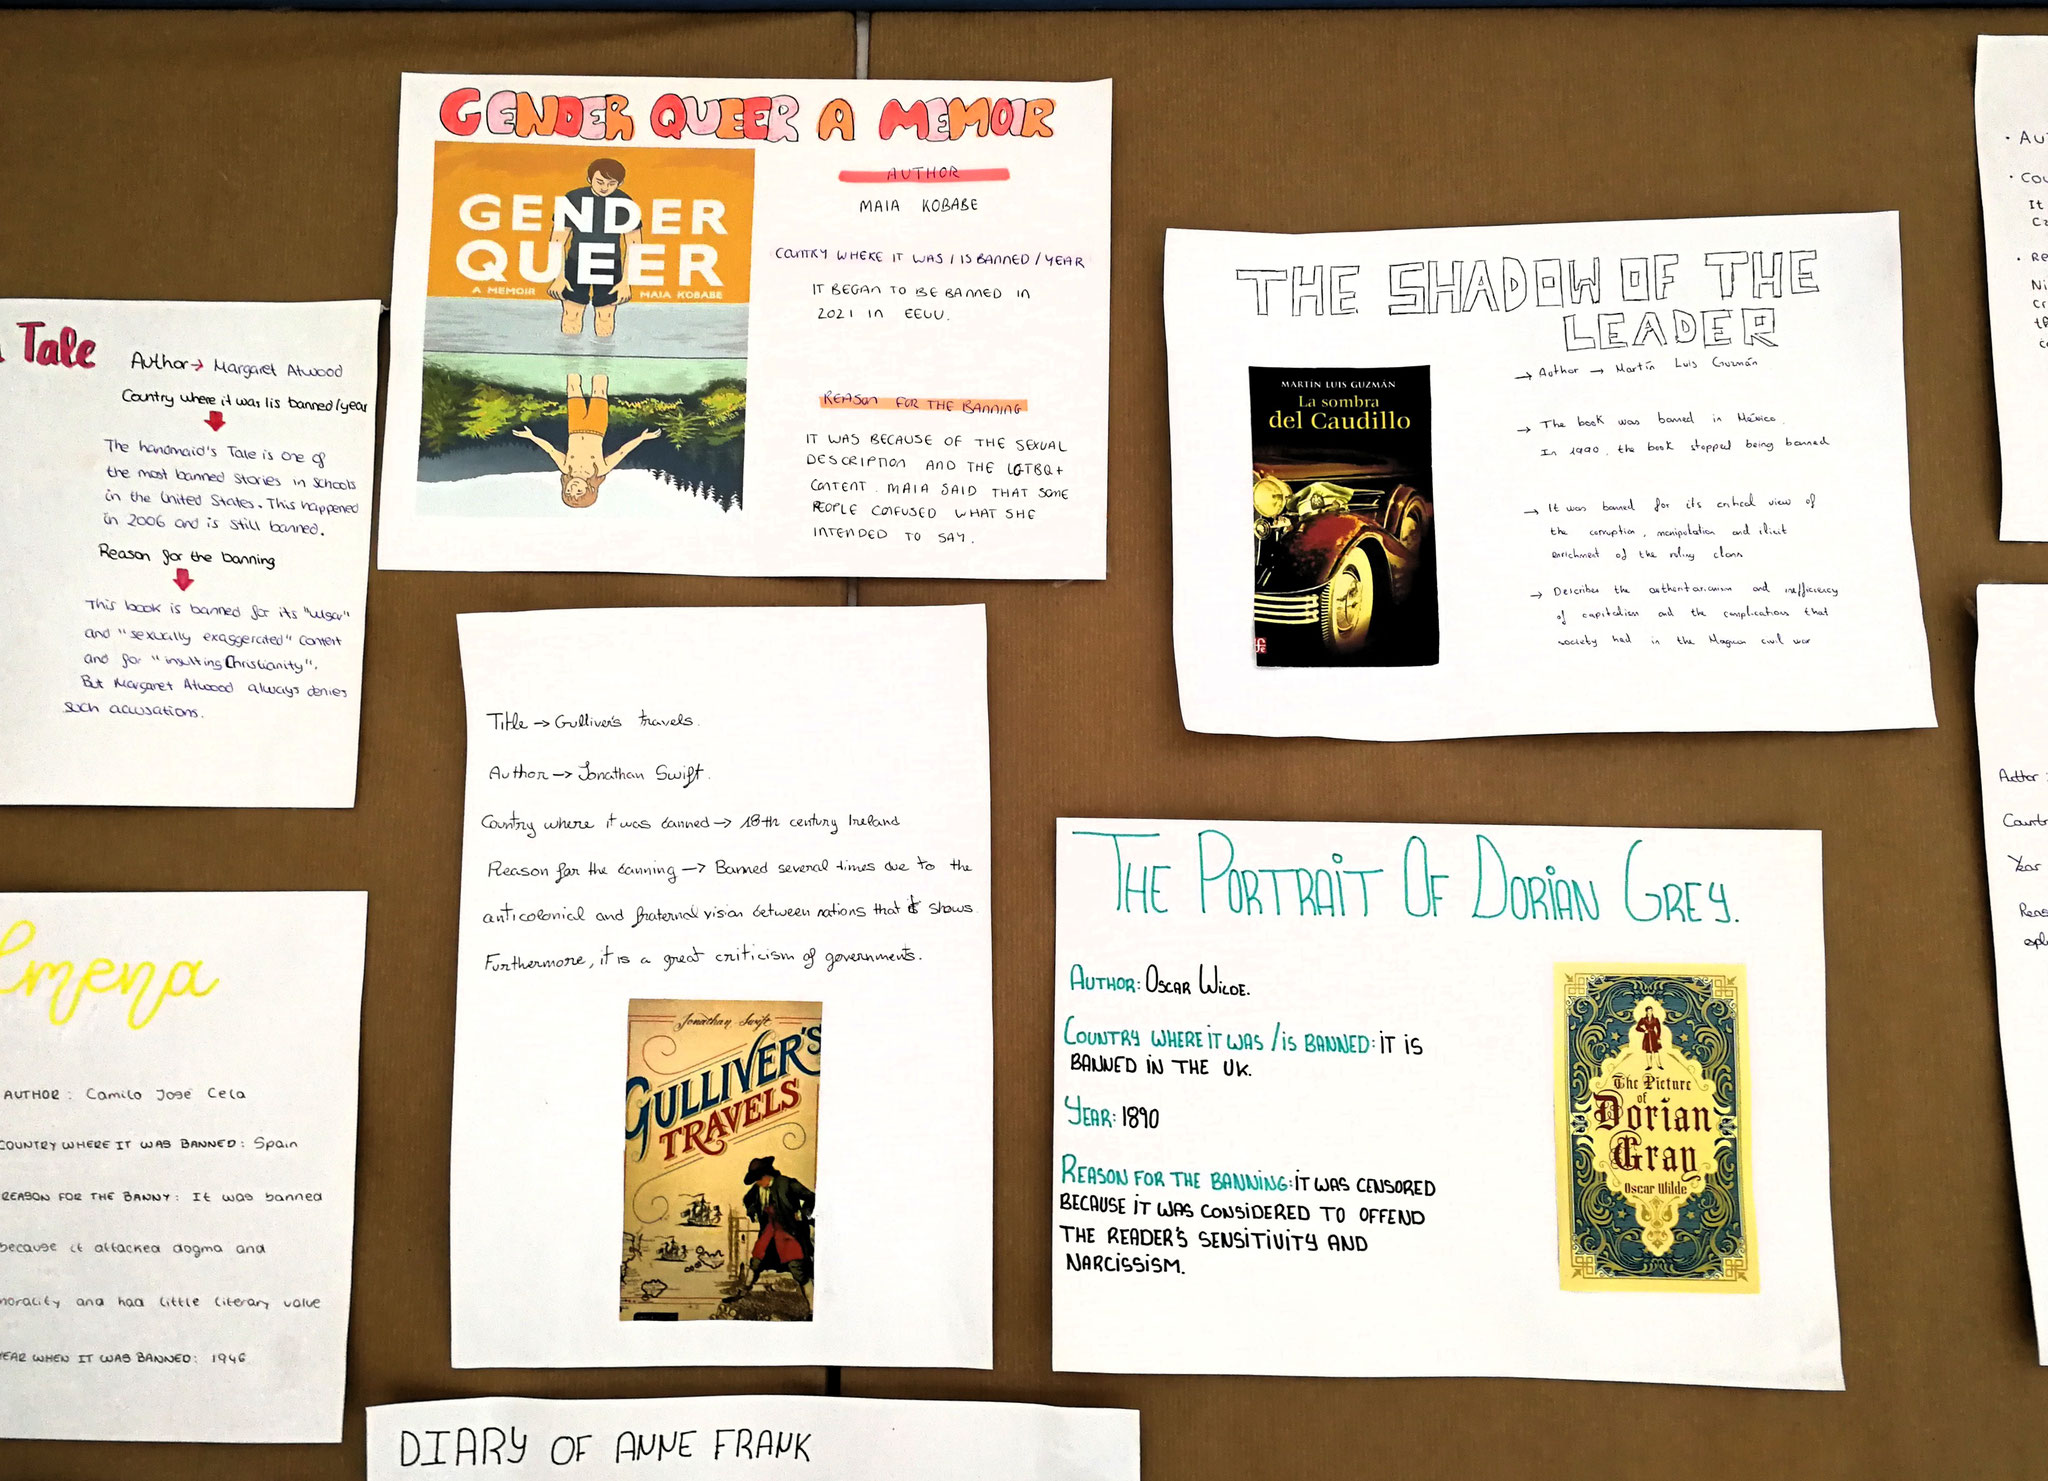 GENDER QUEER A MEMOIR
GENDER
QUEER
A MEMOIR
MAIA KOBABE
AUTHOR
MAIA KOBABE
COUNTRY WHERE IT WAS / IS BANNED / YEAR
IT BEGAN TO BE BANNED IN
2021 IN EEUU.
REASON FOR THE BANNING
IT WAS BECAUSE OF THE SEXUAL
DESCRIPTION AND THE LGTBQ+
CONTENT. MAIA SAID THAT SOME
PEOPLE CONFUSED WHAT SHE
INTENDED TO SAY.
THE SHADOW OF THE
LEADER
MARTÍN LUIS GUZMÁN
La sombra
del Caudillo
→ Author → Martín Luis Guzmán
→ The book was banned in México.
In 1990, the book stopped being banned
→ It was banned for its critical view of
the corruption, manipulation and ilicit
enrichment of the ruling class
→ Describes the authoritarianism and inefficiency
of capitalism and the complications that
society had in the civil war
Tale
Author → Margaret Atwood
Country where it was lis banned/year
The handmaid's Tale is one of
the most banned stories in schools
in the United States. This happened
in 2006 and is still banned.
Reason for the banning
This book is banned for its "vulgar"
and "sexually exaggerated" content
and for "insulting Christianity".
But Margaret Atwood always denies
such accusations.
Title → Gulliver's travels.
Author → Jonathan Swift.
Country where it was banned → 18th century Ireland
Reason for the banning → Banned several times due to the
anticolonial and fraternal vision between nations that it shows.
Furthermore, it is a great criticism of governments.
Jonathan Swift
GULLIVER'S
TRAVELS
THE PORTRAIT OF DORIAN GREY.
AUTHOR: OSCAR WILDE.
COUNTRY WHERE IT WAS / IS BANNED: IT IS
BANNED IN THE UK.
YEAR: 1890
REASON FOR THE BANNING: IT WAS CENSORED
BECAUSE IT WAS CONSIDERED TO OFFEND
THE READER'S SENSITIVITY AND
NARCISSISM.
The Picture
of
Dorian
Gray
Oscar Wilde
lmena
AUTHOR: Camilo José Cela
COUNTRY WHERE IT WAS BANNED: Spain
REASON FOR THE BANNY: It was banned
because it attacked dogma and
morality and had little literary value
YEAR WHEN IT WAS BANNED: 1946
DIARY OF ANNE FRANK
· AU
· COU
It
· RE
Ni
Author:
Countr
Year
Reas